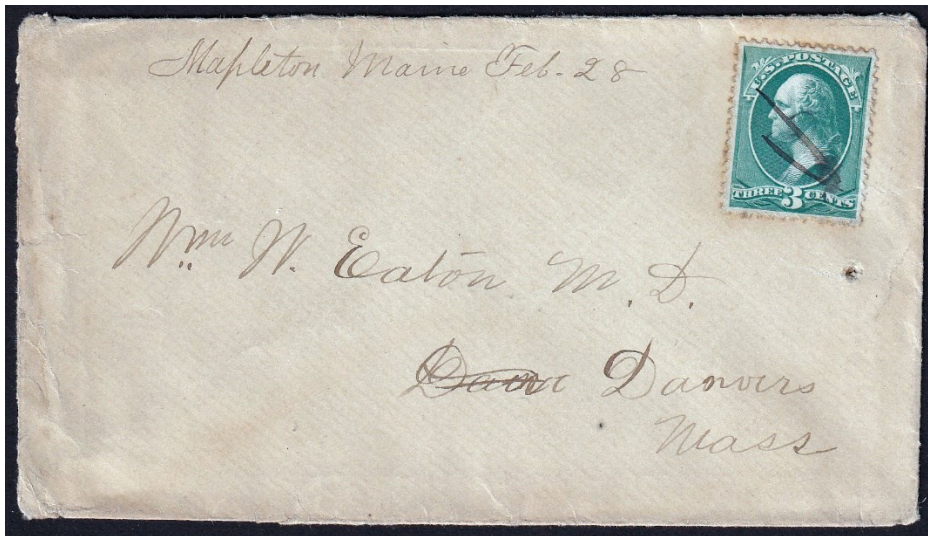 Mapleton Maine Feb. 28
U.S. POSTAGE
THREE 3 CENTS
Wm W. Eaton M. D.
Danvers
Mass